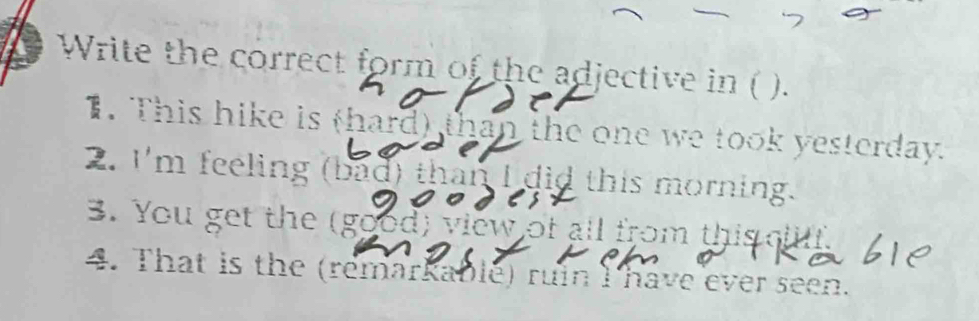 Write the correct form of the adjective in ( ).
harder
1. This hike is (hard) than the one we took yesterday.
bader
2. I'm feeling (bad) than I did this morning.
goodest
3. You get the (good) view of all from this cliff.
most remarkable
4. That is the (remarkable) ruin I have ever seen.